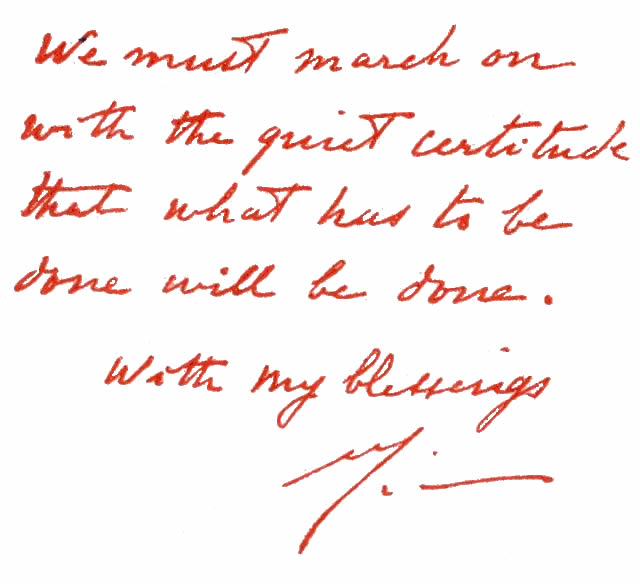 We must march on
with the quiet certitude
that what has to be
done will be done.
With my blessings